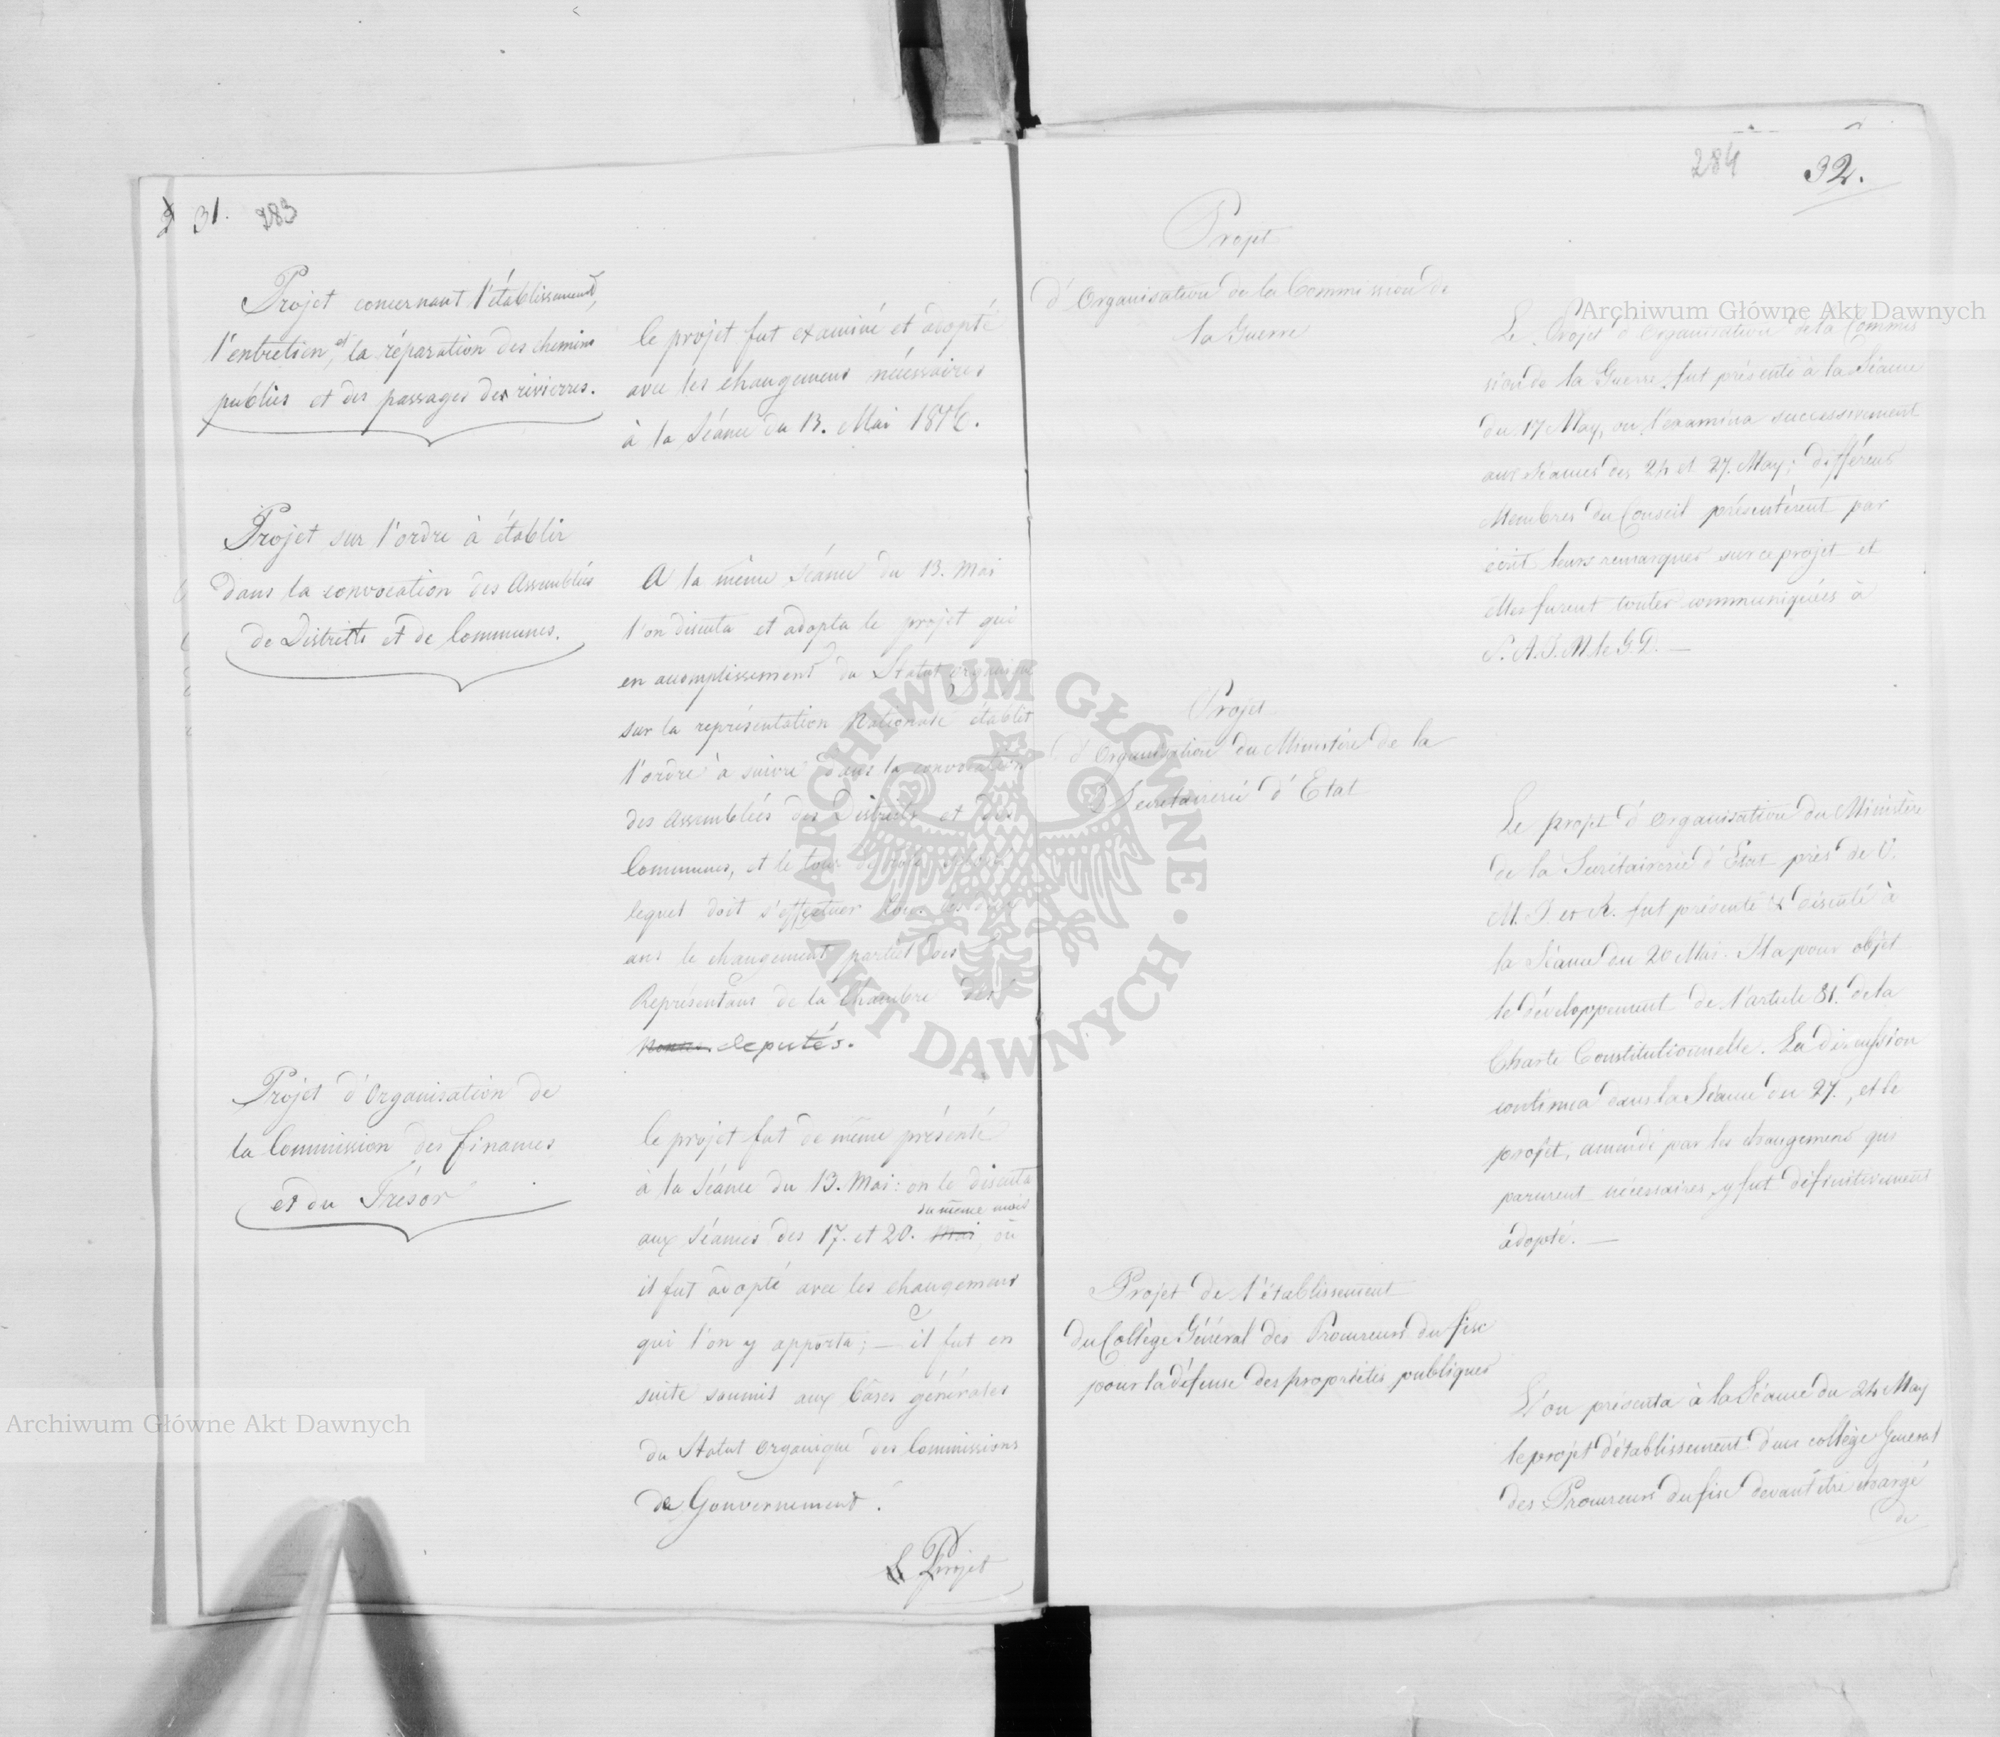 31. 283
Projet concernant l'établissement,
l'entretien, et la réparation des chemins
publics et des passages des rivierres.
le projet fut examiné et adopté
avec les changemens nécéssaires
à la Séance du 13. Mai 1816.
Projet sur l'ordre à établir
dans la convocation des Assemblées
de Districts et de Communes.
A la même séance du 13. Mai
l'on discuta et adopta le projet qui
en acomplissement du Statut organique
sur la représentation Nationale établit
l'ordre à suivre dans la convocation
des Assemblées des Districts et des
Communes, et le tour
lequel doit s'effectuer tous les deux
ans le changement partiel des
Représentans de la Chambre des
députés.
Projet d'Organisation de
la Commission des finances
et du Trésor
le projet fut de même présenté
à la Séance du 13. Mai: on le discuta
du même mois
aux Séances des 17. et 20. Mai, où
il fut adopté avec les changemens
qui l'on y apporta; — il fut en
suite soumis aux bâses générales
du Statut organique des Commissions
de Gouvernement.
Le Projet
284 32.
Projet
d'Organisation de la Commission de
la Guerre
Le Projet d'Organisation de la Commis
sion de la Guerre fut présenté à la Séance
du 17 May, on l'examina successivement
aux Séances des 24 et 27. May; différens
Membres du Conseil présentèrent par
écrit leurs remarques sur ce projet et
elles furent toutes communiquées à
S. A. I. M. le G. D. —
Projet
d'Organisation du Ministère de la
Secrétairerie d'Etat
Le projet d'Organisation du Ministère
de la Secrétairerie d'Etat près de V.
M. I. et R. fut présenté & discuté à
la Séance du 20 Mai. Il a pour objet
le développement de l'article 81. de la
Charte Constitutionnelle. La discussion
continua dans la Séance du 27., et le
projet, amendé par les changemens qui
parurent nécessaires, y fut définitivement
adopté. —
Projet de l'établissement
du Collège Général des Procureurs du fisc
pour la défense des propriétés publiques
L'on présenta à la Séance du 24 May
le projet d'établissement d'un collège General
des Procureurs du fisc devant être chargé
de
Archiwum Główne Akt Dawnych
Archiwum Główne Akt Dawnych
ARCHIWUM GŁÓWNE · AKT DAWNYCH ·